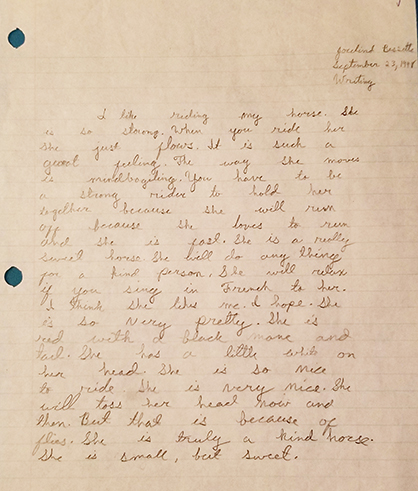 September 23, 1998
Writing
I like riding my horse. She
is so strong. When you ride her
she just flows. It is such a
great feeling. The way she moves
is mindbogiling. You have to be
a strong rider to hold her
together because she will run
off because she loves to run
and she is fast. She is a really
sweet horse. She will do any thing
for a kind person. She will relax
if you sing in French to her.
I think she likes me. I hope. She
is so very pretty. She is
red with a black mane and
tail. She has a little white on
her head. She is so nice
to ride. She is very nice. She
will toss her head now and
then. But that is because of
flies. She is truly a kind horse.
She is small, but sweet.